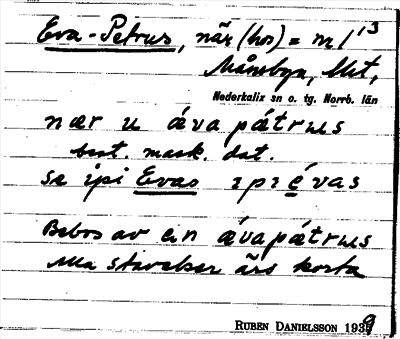 Eva-Petrus, när (hos) = m1 13
Månsbyn, Ht,
Nederkalix sn o. tg. Norrb. län
nær u ávapátrɯs
best. mask. dat.
se ipi Evas ɪpɪ évas
Bebos av en ávapátrɯs
Alla stavelser äro korta
RUBEN DANIELSSON 1939